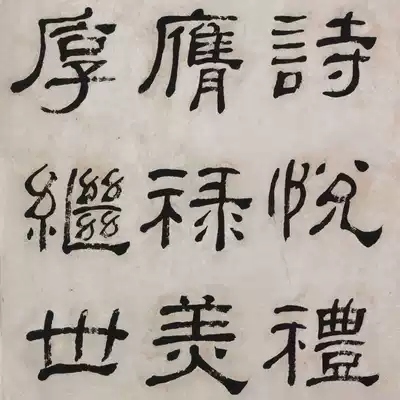 詩悅禮
膺祿美
厚繼世